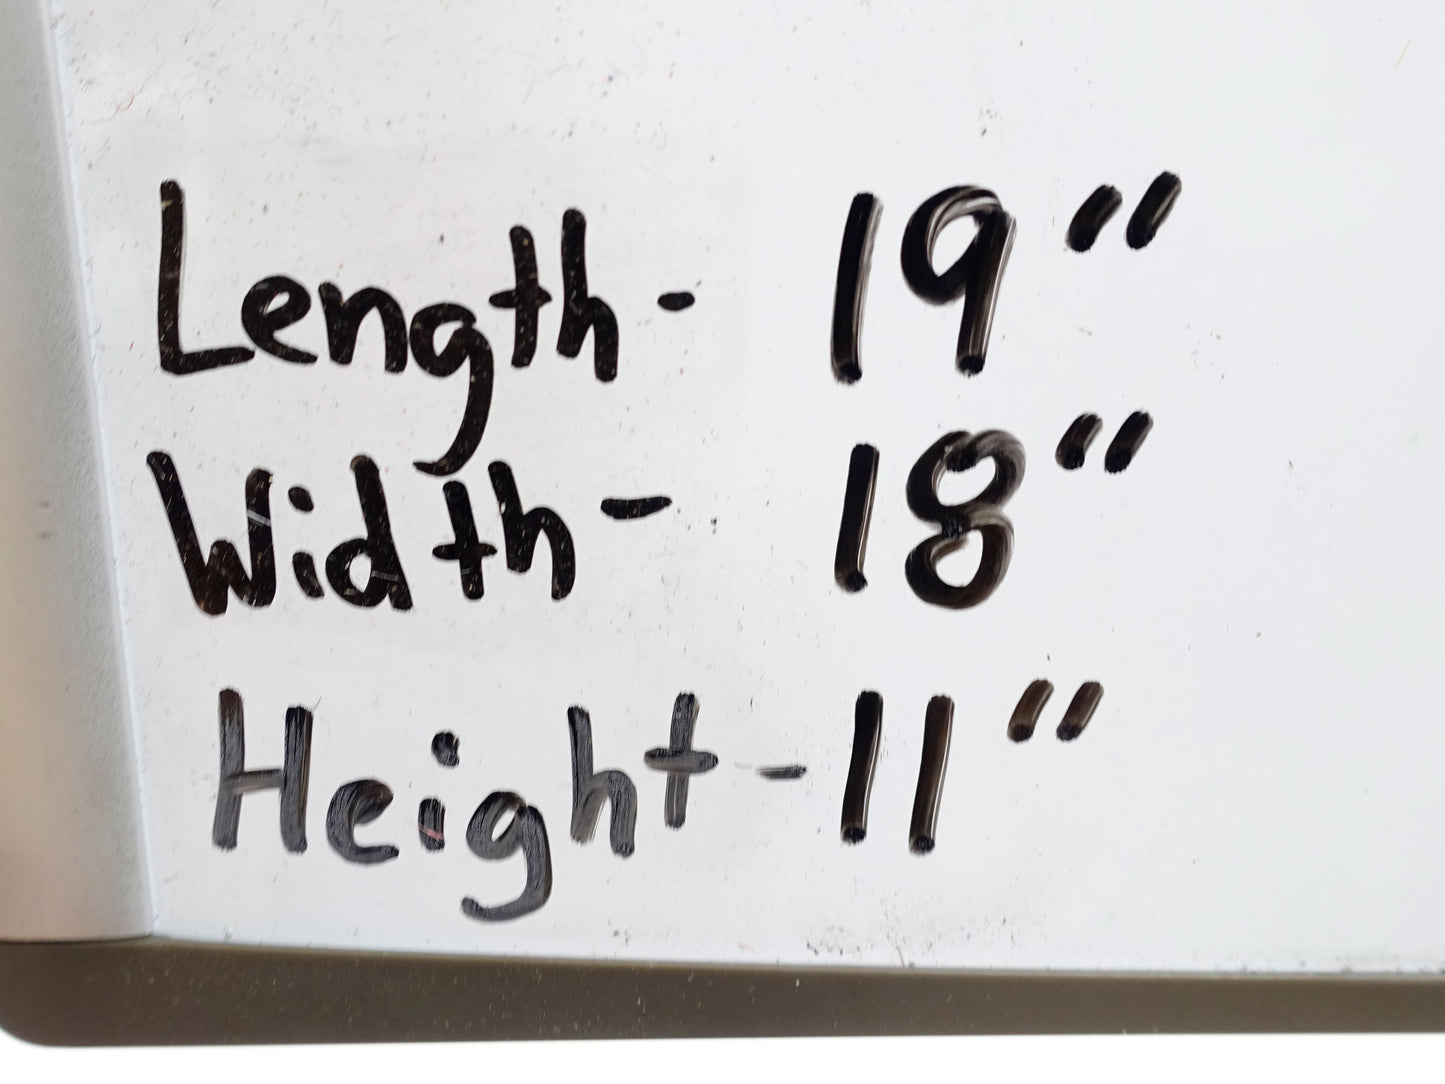 Length - 19"
Width - 18"
Height - 11"